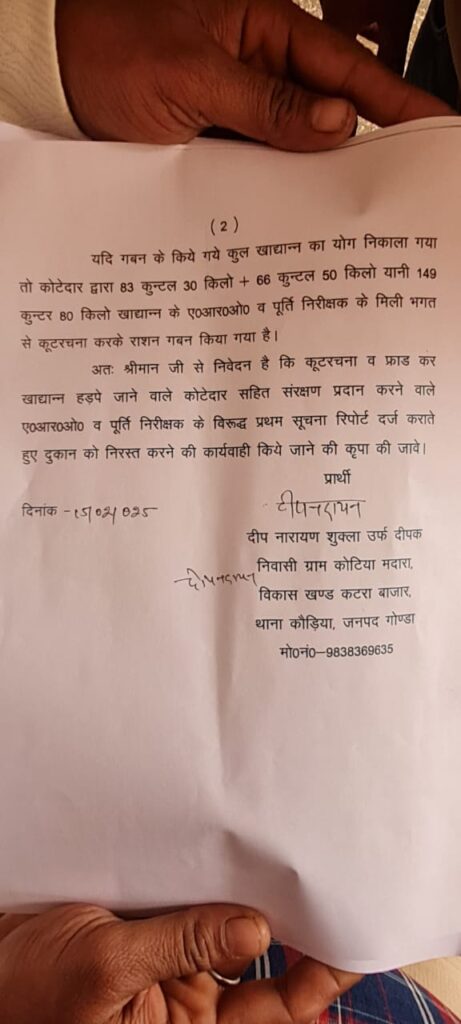 (2)
यदि गबन के किये गये कुल खाद्यान्न का योग निकाला गया
तो कोटेदार द्वारा 83 कुन्टल 30 किलो + 66 कुन्टल 50 किलो यानी 149
कुन्टर 80 किलो खाद्यान्न के ए0आर0ओ0 व पूर्ति निरीक्षक के मिली भगत
से कूटरचना करके राशन गबन किया गया है।
अतः श्रीमान जी से निवेदन है कि कूटरचना व फ्राड कर
खाद्यान्न हड़पे जाने वाले कोटेदार सहित संरक्षण प्रदान करने वाले
ए0आर0ओ0 व पूर्ति निरीक्षक के विरूद्ध प्रथम सूचना रिपोर्ट दर्ज कराते
हुए दुकान को निरस्त करने की कार्यवाही किये जाने की कृपा की जावे।
प्रार्थी
दीपनरायन
दिनांक -15/02/025
दीप नारायण शुक्ला उर्फ दीपक
दीपनरायन
निवासी ग्राम कोटिया मदारा,
विकास खण्ड कटरा बाजार,
थाना कौड़िया, जनपद गोण्डा
मो0नं0-9838369635